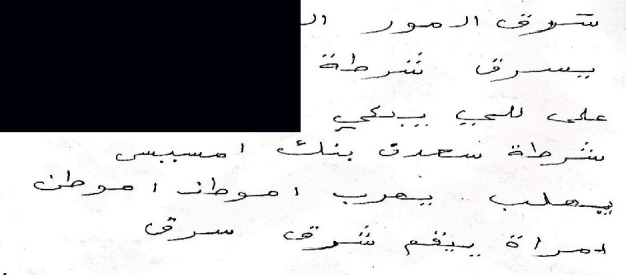 شرق المور ال
يسرق شرطة
على للبي يبكي
شرطة سعدت بنك امسبس
يهلب يعرب اموطن اموطن
امراة ييفم شرق سرق